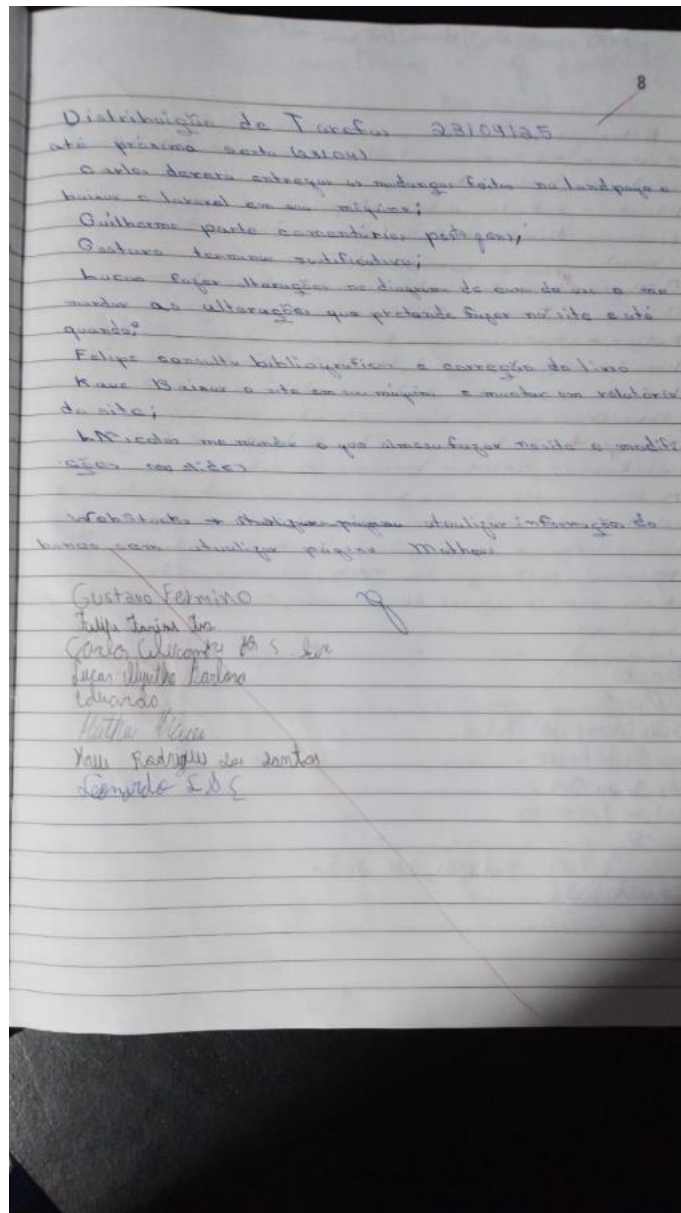 8
Distribuição de Tarefas 23/09/25
até próxima sexta
Carlos devera entregar as mudanças feitas na landpage e
baixar o laravel em sua máquina;
Guilherme parte comentários, postagens;
Gustavo terminar
Lucas fazer alterações no diagrama de caso de uso e me
mandar as alterações que pretende fazer no site e até
quando;
Felipe consulta bibliograficas e correção do
Kaue Baixar o site em sua máquina e montar um relatório
do site;
Nicolas me mande o que almeja fazer no site e modifi
cações
WebStocks atualizar informação do
banco sem atualizar página Matheus
Gustavo Fermino
Felipe
Carlos
Lucas
Eduardo
Kaue Rodrigues dos Santos
Leonardo